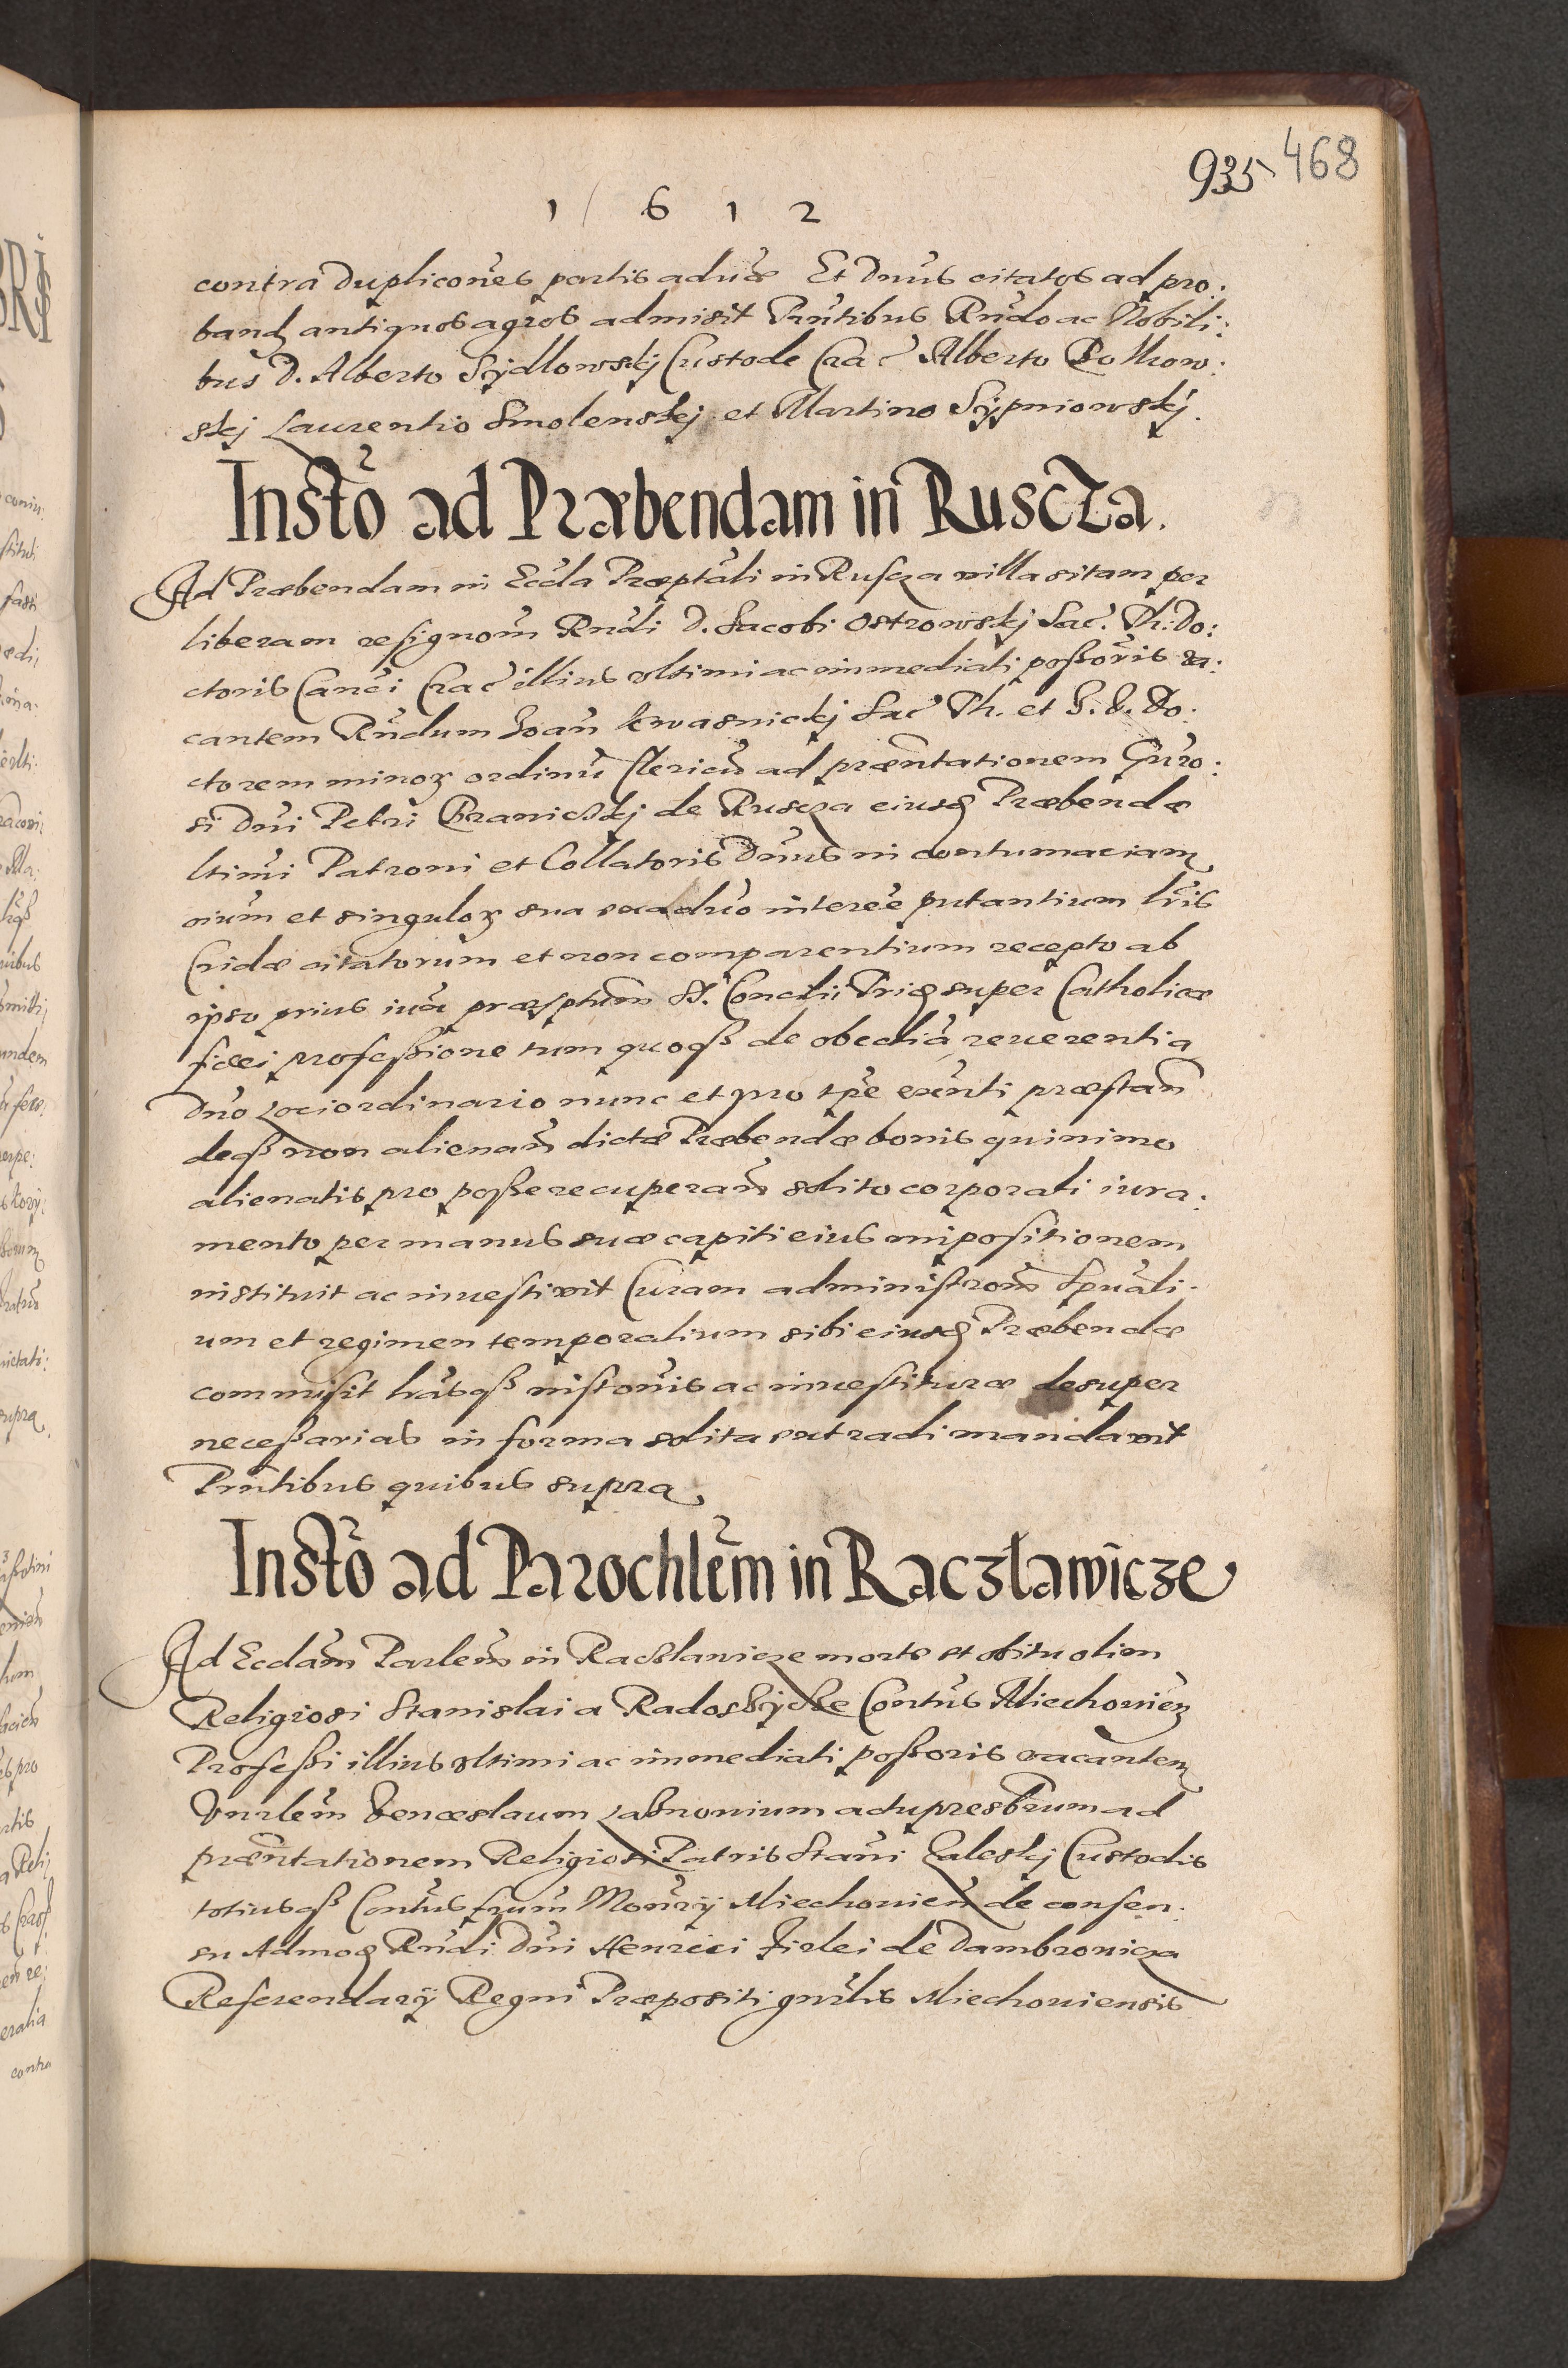 935 468
1 6 1 2
contra duplicões partis aduæ Et Dnus citatos ad pro:
band antiquos agros admisit Pñtibus Rñdo ac Nobili:
bus D. Alberto Sÿdlowskÿ Custode Crac̃ Alberto
skj Laurentio Smolenskj et Martino Sÿpniowskj.
Instõ ad Præbendam in Ruscza.
Ad Præbendam in Eccla Præptali in Ruscza villa sitam per
liberam resignoñ Rñdi D. Jacobi Ostrowskj Sac. Th: Do:
ctoris Canci Crac̃ illius vltimi ac immediati possoris va:
cantem Rñdum Joañ Kwasnickj Sac Th. et I. V. Do:
ctorem minoꝝ ordinũ Clericũ ad præñtationem Gñro:
si Dñi Petri Branickj de Ruscza eiusꝗ Præbendæ
ltimi Patroni et Collatoris Dnus in contumaciam
oium et singuloꝝ sua interee putantium lris
Cridæ citatorum et non comparentium recepto ab
ipso prius iuxa præsptum S. Concilii Triꝗ super Catholicæ
fidei professione tum quoqß de obedia reuerentia
Dño Lociordinario nunc et pro tpe exñti præstañ
deqß non alienañ dictæ Præbendæ bonis quinimo
alienatis pro posse recuperañ solito corporali iura:
mento per manus suæ capiti eius impositionem
instituit ac inuestiuit Curam administroñ Spuali:
um et regimen temporalium sibi eiusꝗ Præbendæ
commisit lrasqß instonis ac inuestituræ desuper
necessarias in forma solita extradi mandauit
Pñtibus quibus supra
Instõ ad Parochlem in Raczławicze
Ad Ecclam Parlem in Racławicze morte et obitu olim
Religiosi Stanislai a Radoszÿcze Contus Miechouieñ
Professi illius vltimi ac immediati possoris vacantem
Vnrlem Venceslaum actu presbrum ad
præñtationem Religiosi Patris Stañi Zaleskj Custodis
totiusqß Contus frum Monrÿ Miechouieñ de consen:
su Admoꝗ Rñdi Dñi Henrici Firlei de Dambrowicza
Referendarÿ Regni Præpositi gnrlis Miechouiensis